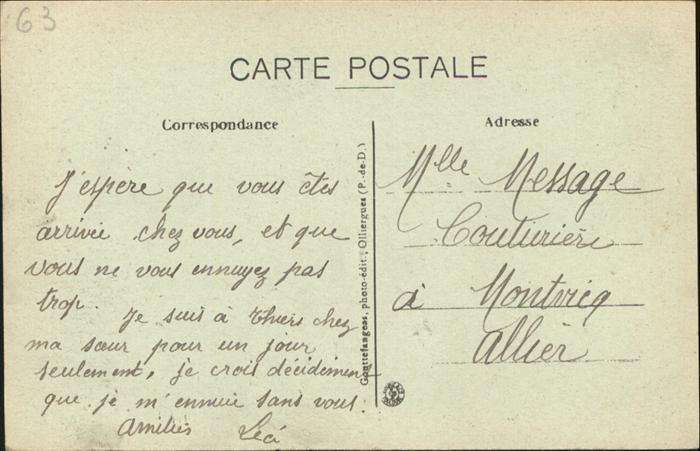 63
CARTE POSTALE
Correspondance
J'espère que vous êtes
arrivée chez vous, et que
vous ne vous ennuyez pas
trop.
Je suis à Thiers chez
ma sœur pour un jour
seulement, je crois décidément
que je m'ennuie sans vous.
Amitiés
Gouttefangeas, photo-édit., Olliergues (P.-de-D.)
Adresse
Mlle Message
Couturière
à Montvicq
Allier